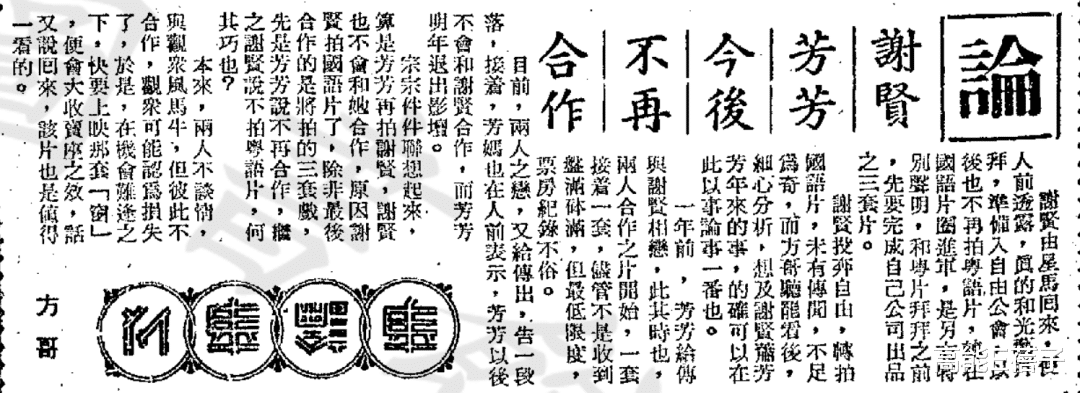 論
謝賢
芳芳
今後
不再
合作
謝賢由星馬回來,
人前透露,眞的和光藝拜
拜,準備入自由公會,以
後也不再拍粵語片,她在
國語片圈進軍,是另有特
別聲明,和粵片拜拜之前
,先要完成自己公司出品
之三套片。
謝賢投奔自由,轉拍
國語片,未有傳聞,不足
爲奇,而方哥聽罷看後,
細心分析,想及謝賢蕭芳
芳年來的事,的確可以在
此以事論事一番也。
一年前,芳芳給傳
與謝賢相戀,此其時也,
兩人合作之片開始,一套
接着一套,儘管不是收到
盤滿砵滿,但最低限度,
票房紀錄不俗。
目前,兩人之戀,又給傳出,告一段
落,接着,芳媽也在人前表示,芳芳以後
不會和謝賢合作,而芳芳
明年退出影壇。
宗宗件件聯想起來,
算是芳芳再拍謝賢,謝賢
也不會和她合作,原因謝
賢拍國語片了,除非最後
合作的是將拍的三套戲,
先是芳芳說不再合作,繼
之謝賢說不拍粵語片,何
其巧也?
本來,兩人不談情,
與觀衆風馬牛,但彼此不
合作,觀衆可能認爲損失
了,於是,在機會難逢之
下,快要上映那套「窗」
,便會大收賣座之效,話
又說回來,該片也是値得
一看的。
方哥